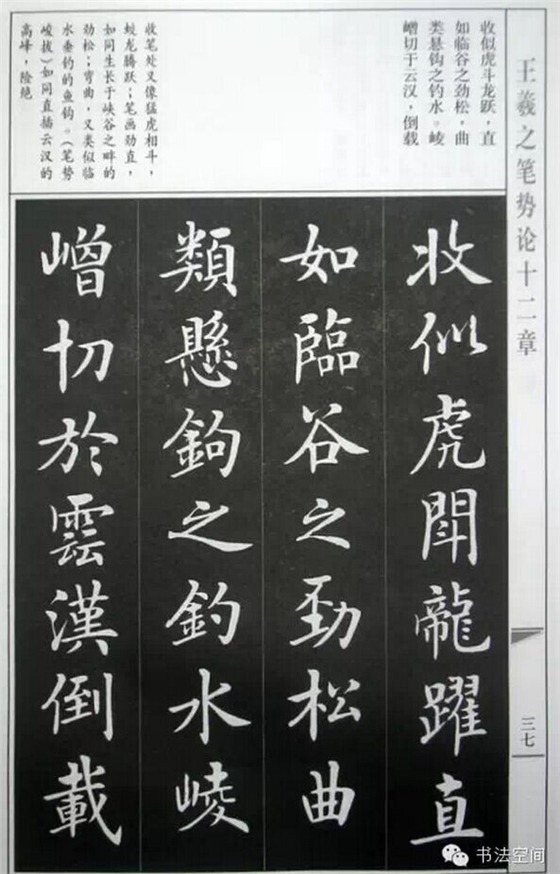 王羲之笔势论十二章
收似虎斗龙跃，直
如临谷之劲松，曲
类悬钩之钓水。崚
嶒切于云汉，倒载
收笔处又像猛虎相斗，
蛟龙腾跃；笔画劲直，
如同生长于峡谷之畔的
劲松；弯曲，又类似临
水垂钓的鱼钩。（笔势
峻拔）如同直插云汉的
高峰，险绝
收似虎鬥龍躍直
如臨谷之勁松曲
類懸鉤之釣水崚
嶒切於雲漢倒載
三七
书法空间